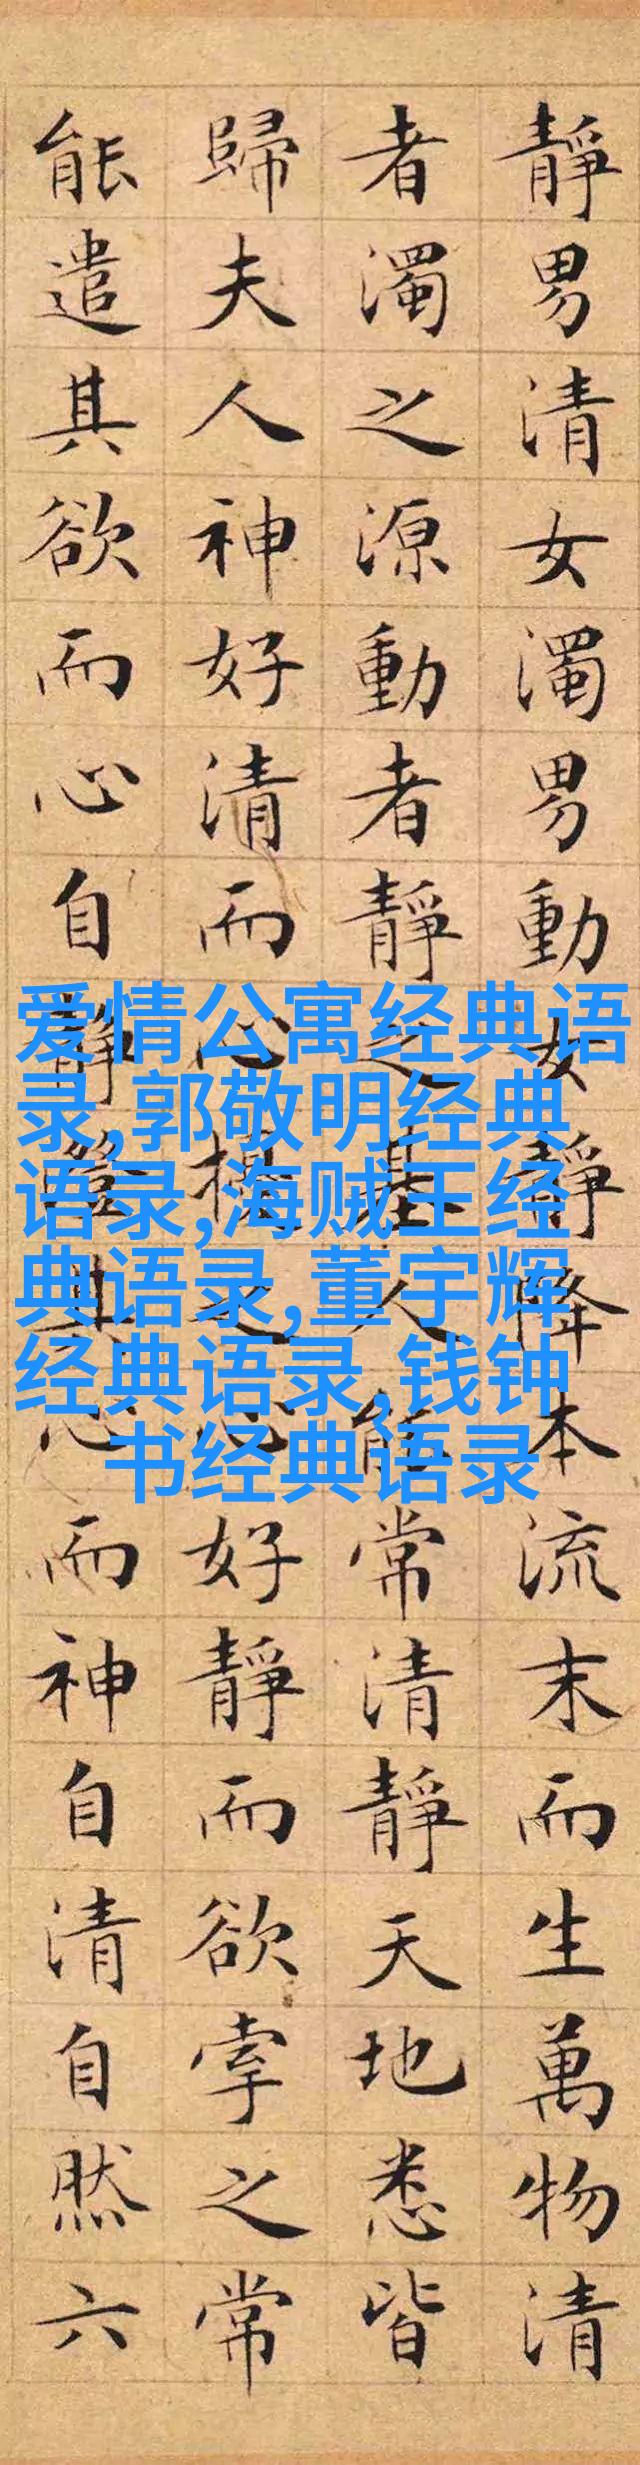 靜男清女濁男動女靜降本流末而生萬物清
者濁之源動者靜之基人能常清靜天地悉皆
歸夫人神好清而心擾之心好靜而欲牽之常
能遣其欲而心自靜澄其心而神自清自然六
爱情公寓经典语
录,郭敬明经典
语录,海贼王经
典语录,董宇辉
经典语录,钱钟
书经典语录